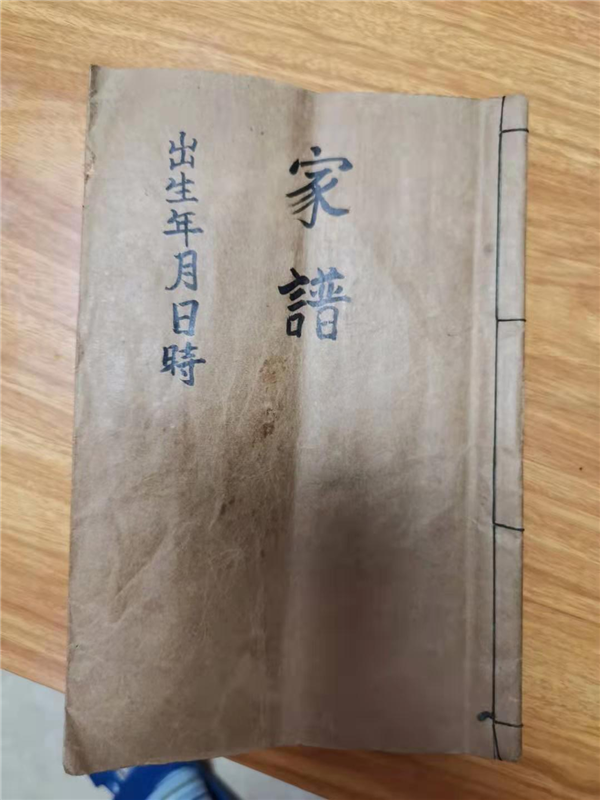 家譜
出生年月日時